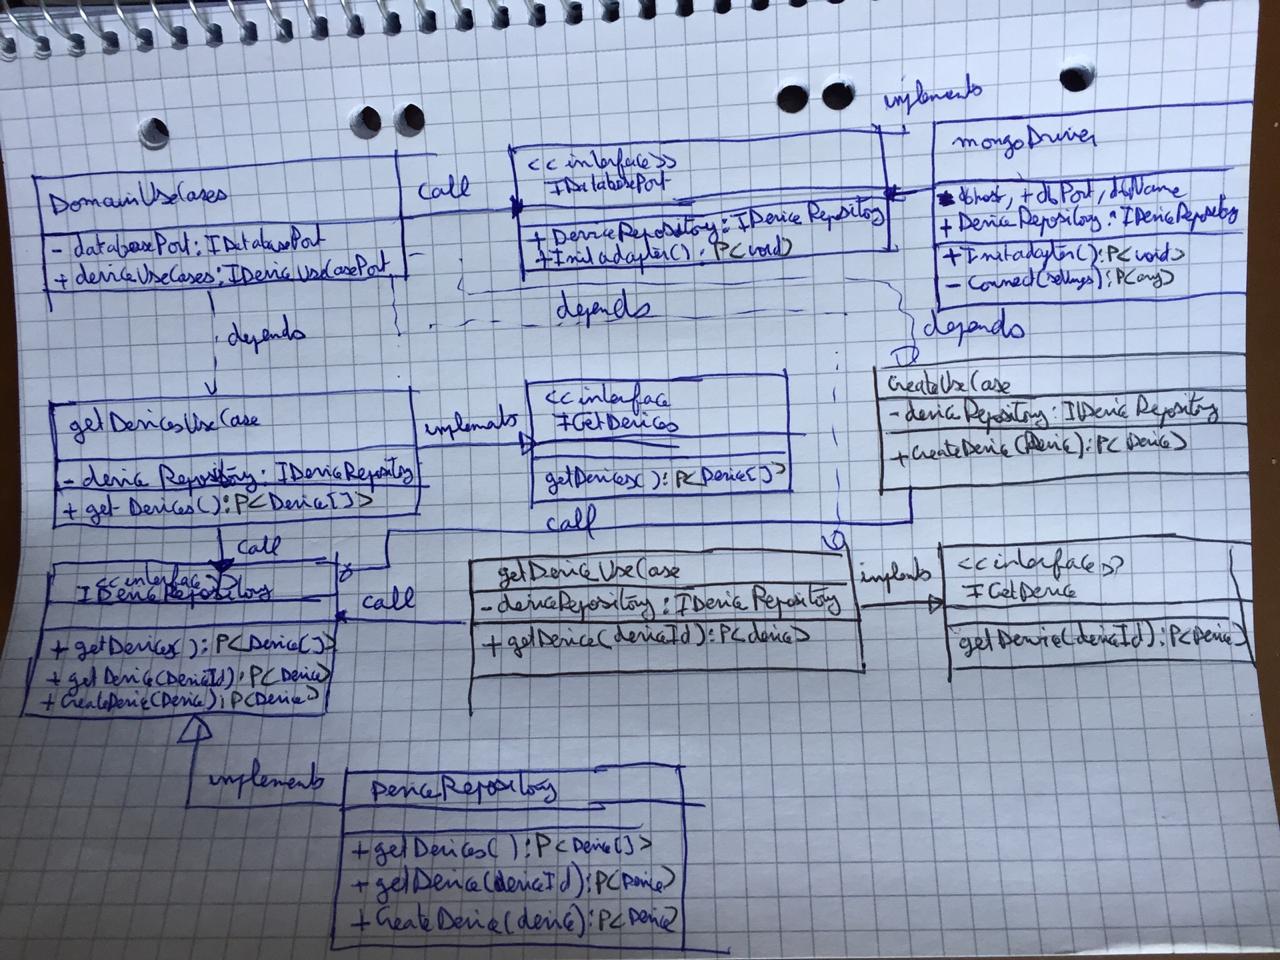 implements
DomainUseCases
- databasePort: IDatabasePort
+ deviceUseCases: IDeviceUseCasePort
call
<<interface>>
IDatabasePort
+ DeviceRepository: IDeviceRepository
+ Initadapter(): P<void>
mongoDriver
dbhost, +dbPort, dbName
+ DeviceRepository: IDeviceRepository
+ Initadapter(): P<void>
- Connect(settings): P<any>
depends
depends
depends
getDevicesUseCase
- device Repository: IDeviceRepository
+ get-Devices(): P<Device[]>
implements
<<interface
IGetDevices
getDevices(): P<Device[]>
CreateUseCase
- deviceRepository: IDeviceRepository
+ CreateDevice(Device): P<Device>
call
call
<<interface>>
IDeviceRepository
+ getDevices(): P<Device[]>
+ getDevice(DeviceId): P<Device>
+ CreateDevice(Device): P<Device>
call
getDeviceUseCase
- deviceRepository: IDeviceRepository
+ getDevice(deviceId): P<device>
implents
<<interfaces>>
IGetDevice
getDevice(deviceId): P<Device>
implements
DeviceRepository
+ getDevices(): P<Device[]>
+ getDevice(deviceId): P<Device>
+ CreateDevice(device): P<Device>